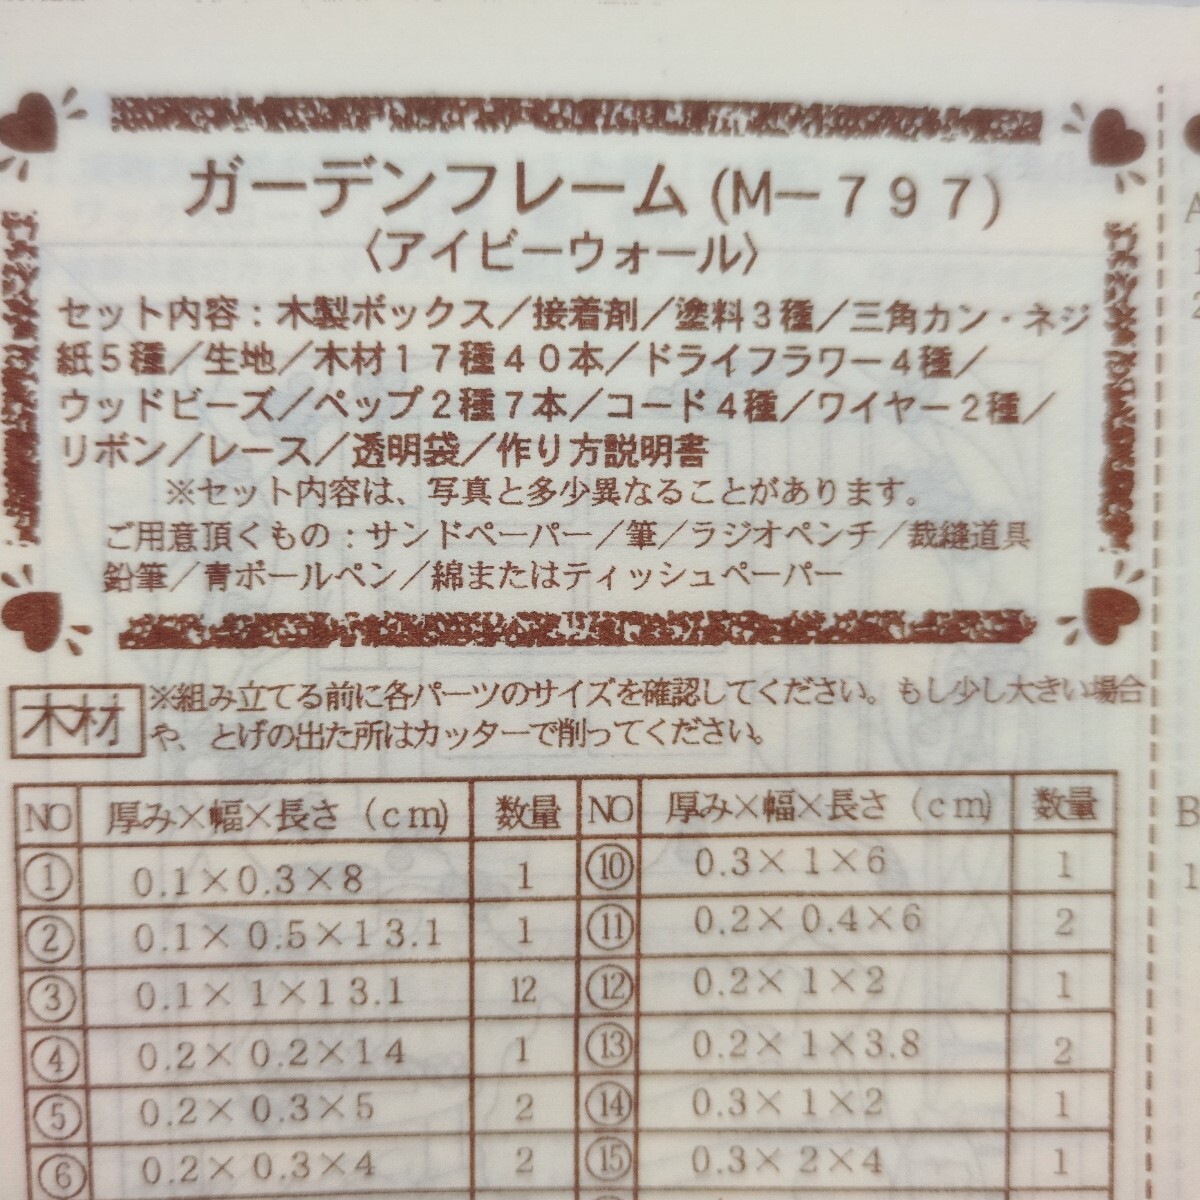 ガーデンフレーム(M－７９７)
〈アイビーウォール〉
セット内容：木製ボックス／接着剤／塗料３種／三角カン・ネジ
紙５種／生地／木材１７種４０本／ドライフラワー４種／
ウッドビーズ／ペップ２種７本／コード４種／ワイヤー２種／
リボン／レース／透明袋／作り方説明書
※セット内容は、写真と多少異なることがあります。
ご用意頂くもの：サンドペーパー／筆／ラジオペンチ／裁縫道具
鉛筆／青ボールペン／綿またはティッシュペーパー
木材
※組み立てる前に各パーツのサイズを確認してください。もし少し大きい場合
や、とげの出た所はカッターで削ってください。
NO 厚み×幅×長さ（cm） 数量 NO 厚み×幅×長さ（cm） 数量
① 0.1×0.3×8 1 ⑩ 0.3×1×6 1
② 0.1×0.5×13.1 1 ⑪ 0.2×0.4×6 2
③ 0.1×1×13.1 12 ⑫ 0.2×1×2 1
④ 0.2×0.2×14 1 ⑬ 0.2×1×3.8 2
⑤ 0.2×0.3×5 2 ⑭ 0.3×1×2 1
⑥ 0.2×0.3×4 2 ⑮ 0.3×2×4 1
A
1
2
B
1